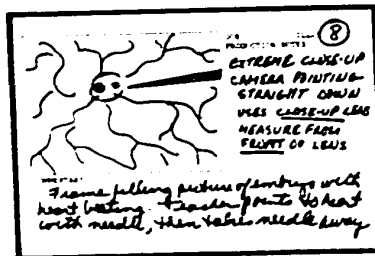 8
PRODUCTION NOTES
EXTREME CLOSE-UP
CAMERA POINTING
STRAIGHT DOWN
USES CLOSE-UP LENS
MEASURE FROM
FRONT OF LENS
Frame filling picture of embryo with
heart beating. Teacher points to heart
with needle, then takes needle away